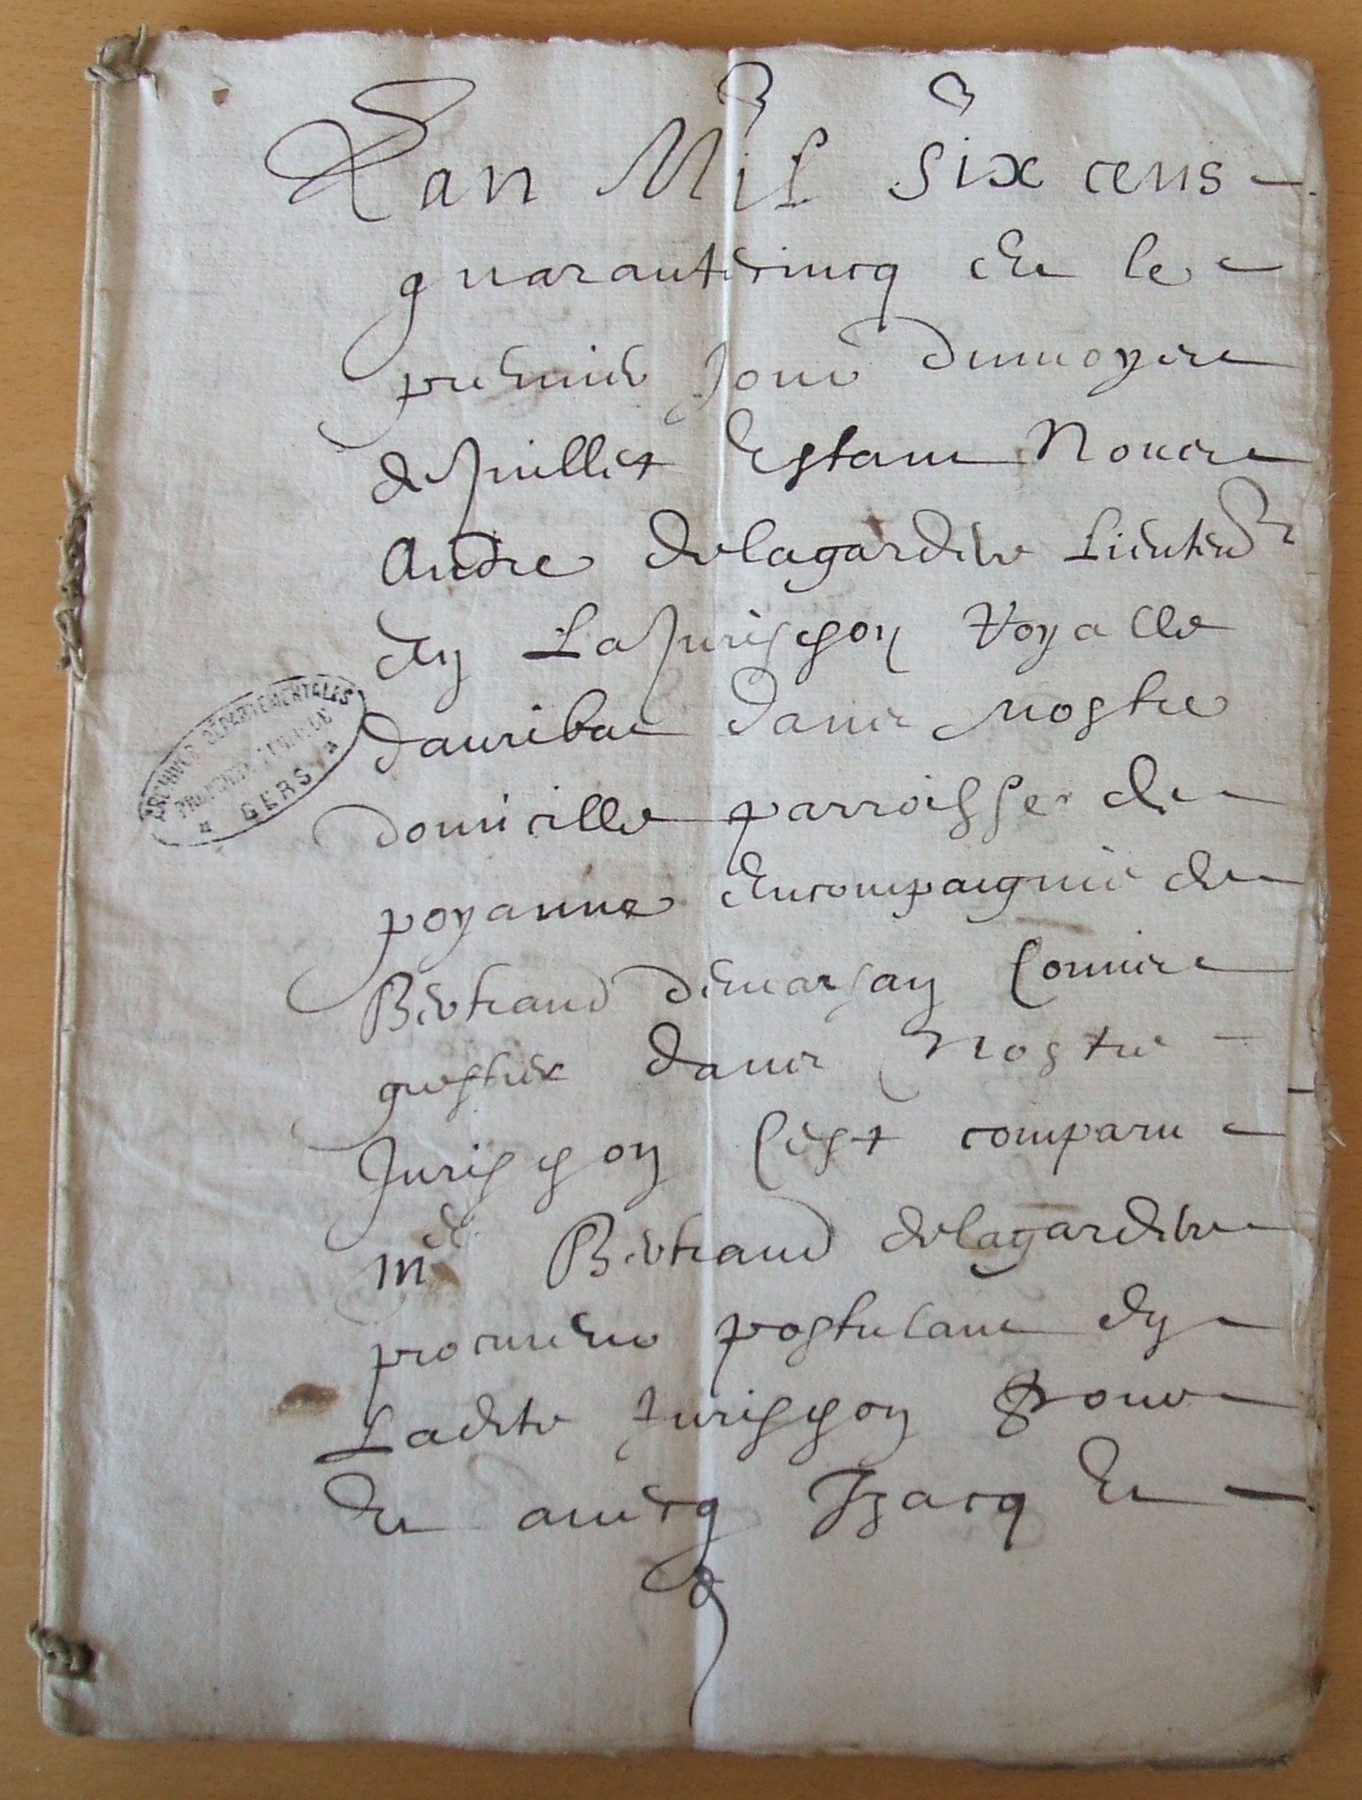 Lan Mil Six cens
quarantecincq et le
premier Jour du moys
de Juillet Estant Nous
Andre delagardere Lieuten
en La Jurison Royalle
dauribat dans nostre
domicille parroisse de
poyanne Encompaignie de
Bertrand demarsan commis
greffier dans Nostre
Jurison Cest comparu
Me Bertrand delagardere
procureur postulant en
Ladite Jurison pour
et avecq Izacq de
ARCHIVES DÉPARTEMENTALES
GERS